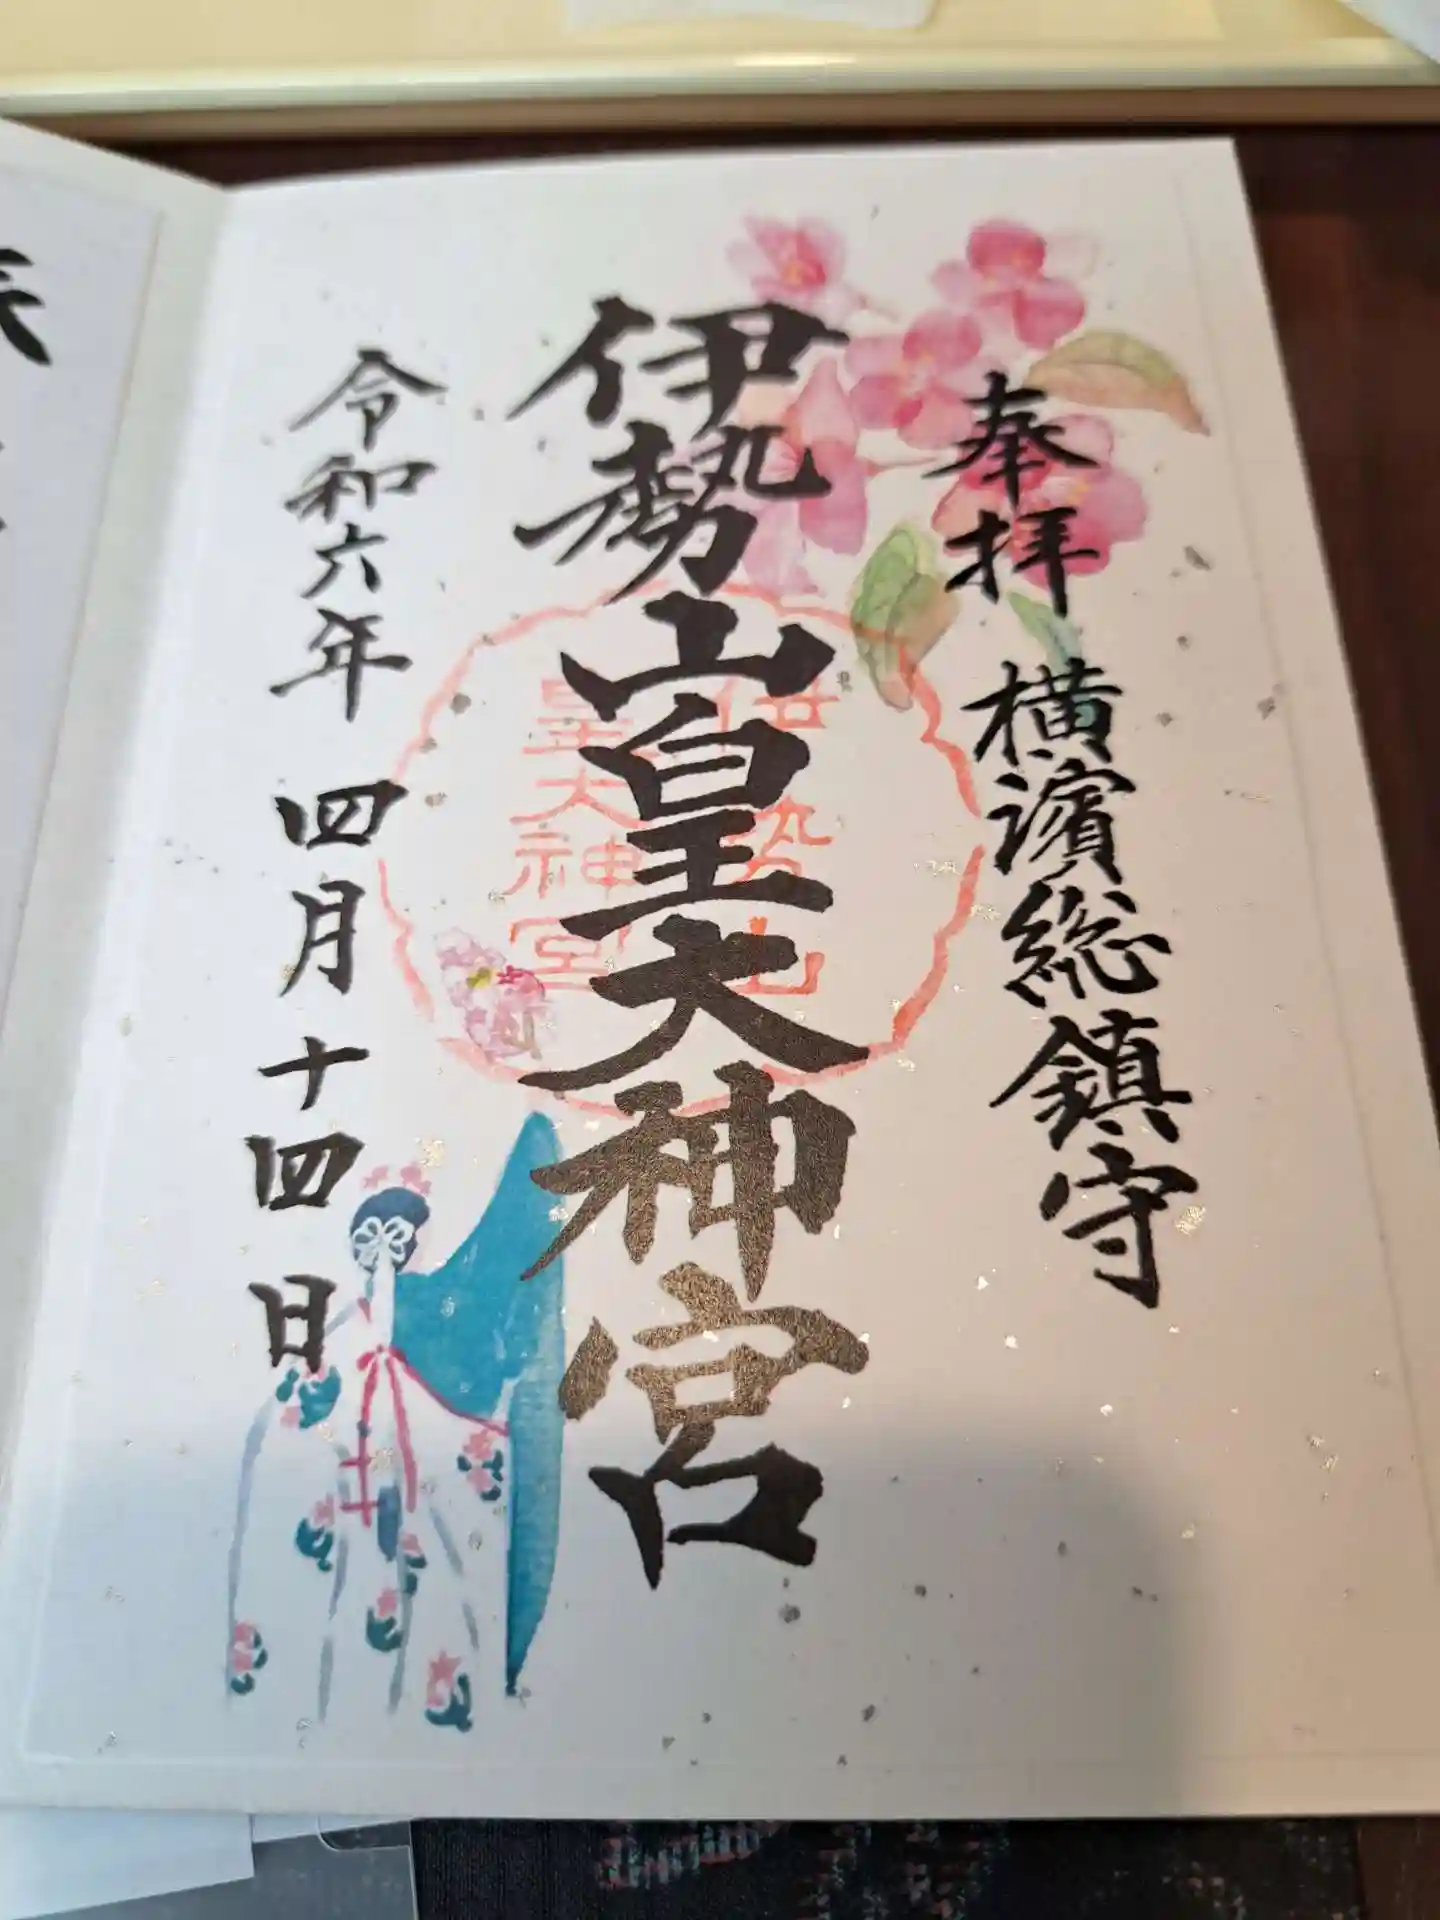 奉拝 横濱総鎮守
伊勢山皇大神宮
伊勢山
皇大神宮
令和六年 四月十四日